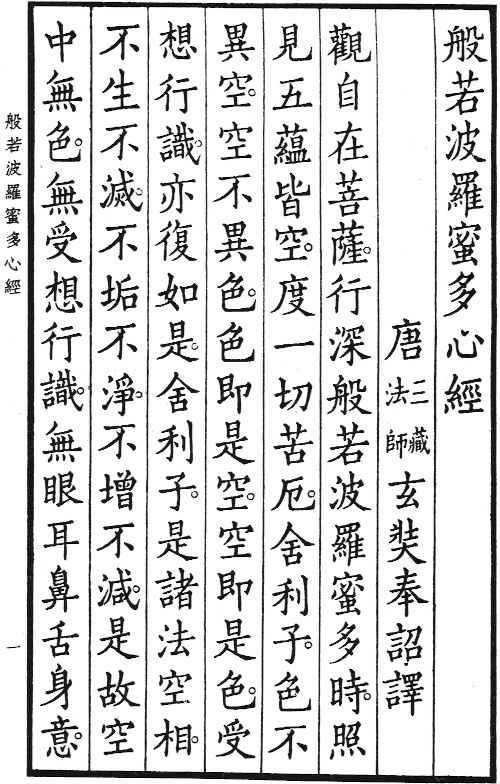 般若波羅蜜多心經
唐三藏法師玄奘奉詔譯
觀自在菩薩。行深般若波羅蜜多時。照
見五蘊皆空。度一切苦厄。舍利子。色不
異空。空不異色。色即是空。空即是色。受
想行識。亦復如是。舍利子。是諸法空相。
不生不滅。不垢不淨。不增不減。是故空
中無色。無受想行識。無眼耳鼻舌身意。
般若波羅蜜多心經
一